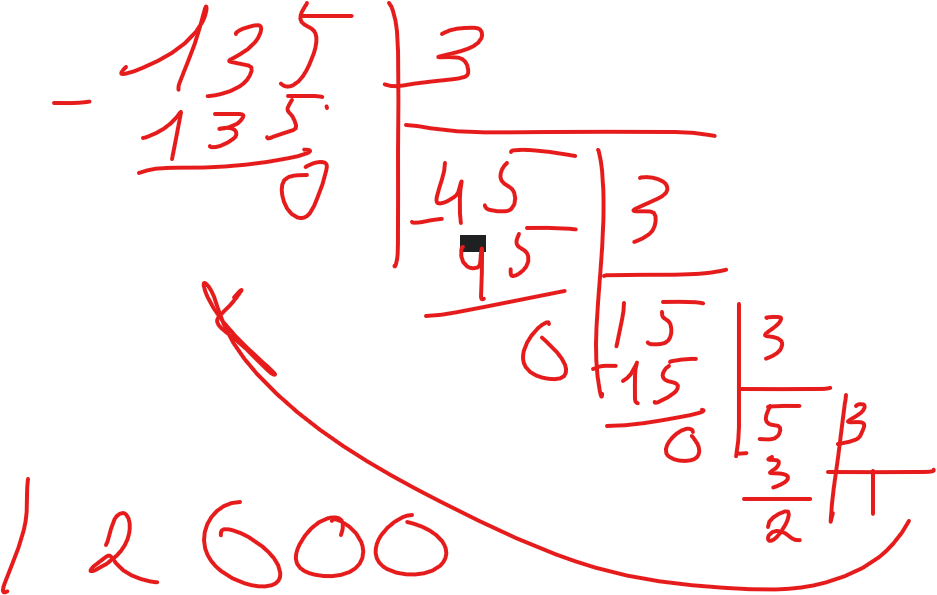 135 3
- 135
0
45 3
- 45
0
15 3
- 15
0
5 3
- 3 1
2
12000